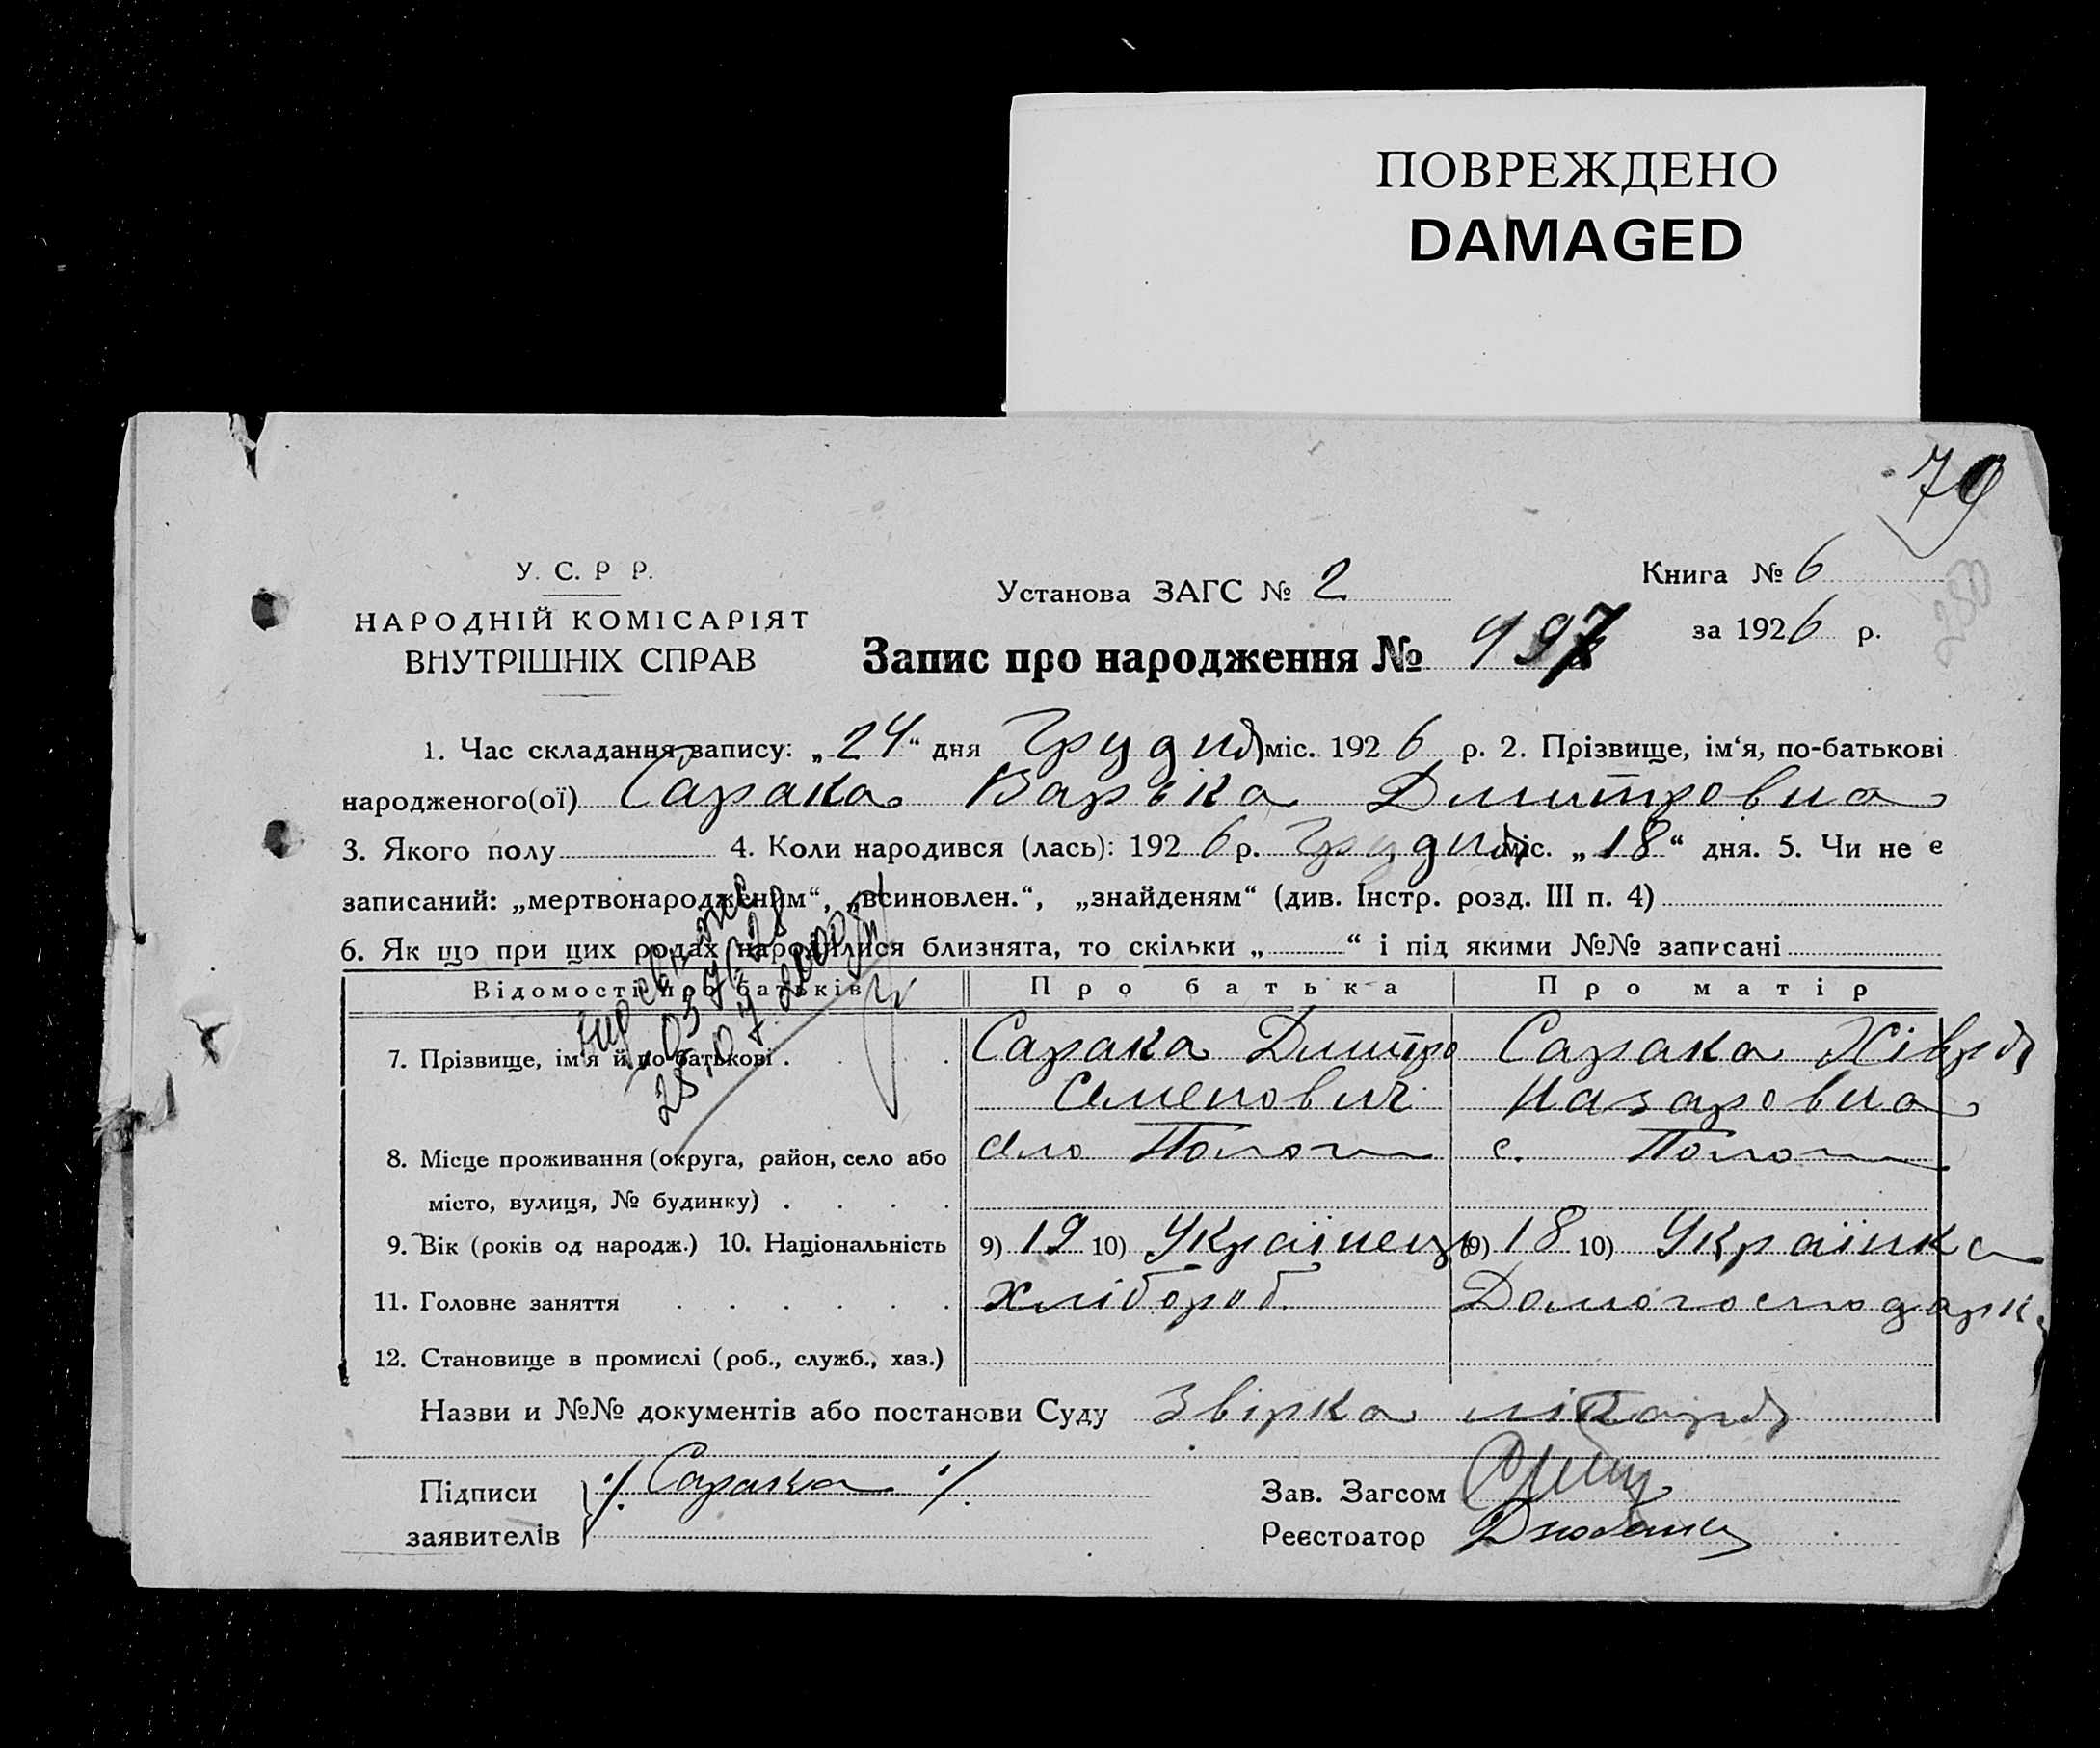 ПОВРЕЖДЕНО
DAMAGED
79
У. С. Р Р.
НАРОДНІЙ КОМІСАРІЯТ
ВНУТРІШНІХ СПРАВ
Установа ЗАГС № 2
Книга № 6
за 1926 р.
Запис про народження № 497
1. Час складання запису: „24“ дня Грудня міс. 1926 р. 2. Прізвище, ім‘я, по-батькові
народженого(ої) Сарака Варька Дмитровна
3. Якого полу 4. Коли народився (лась): 1926 р. Грудня міс. „18“ дня. 5. Чи не є
записаний: „мертвонародженим“, „всиновлен.“, „знайденям“ (див. Інстр. розд. III п. 4)
6. Як що при цих родах народилися близнята, то скільки „ “ і під якими №№ записані
Відомості про батьків Про батька Про матір
7. Прізвище, ім'я й по-батькові . Сарака Дмитро Сарака Хівря
Семенович Назаровна
8. Місце проживання (округа, район, село або село Пологи с. Пологи
місто, вулиця, № будинку) .
9. Вік (років од народж.) 10. Національність 9) 19 10) Українець 9) 18 10) Українка
11. Головне заняття Хлібороб Домогосподарка
12. Становище в промислі (роб., служб., хаз.)
Назви и №№ документів або постанови Суду Звірка лікаря
Підписи ./. Сарака ./. Зав. Загсом
заявителів Реєстратор